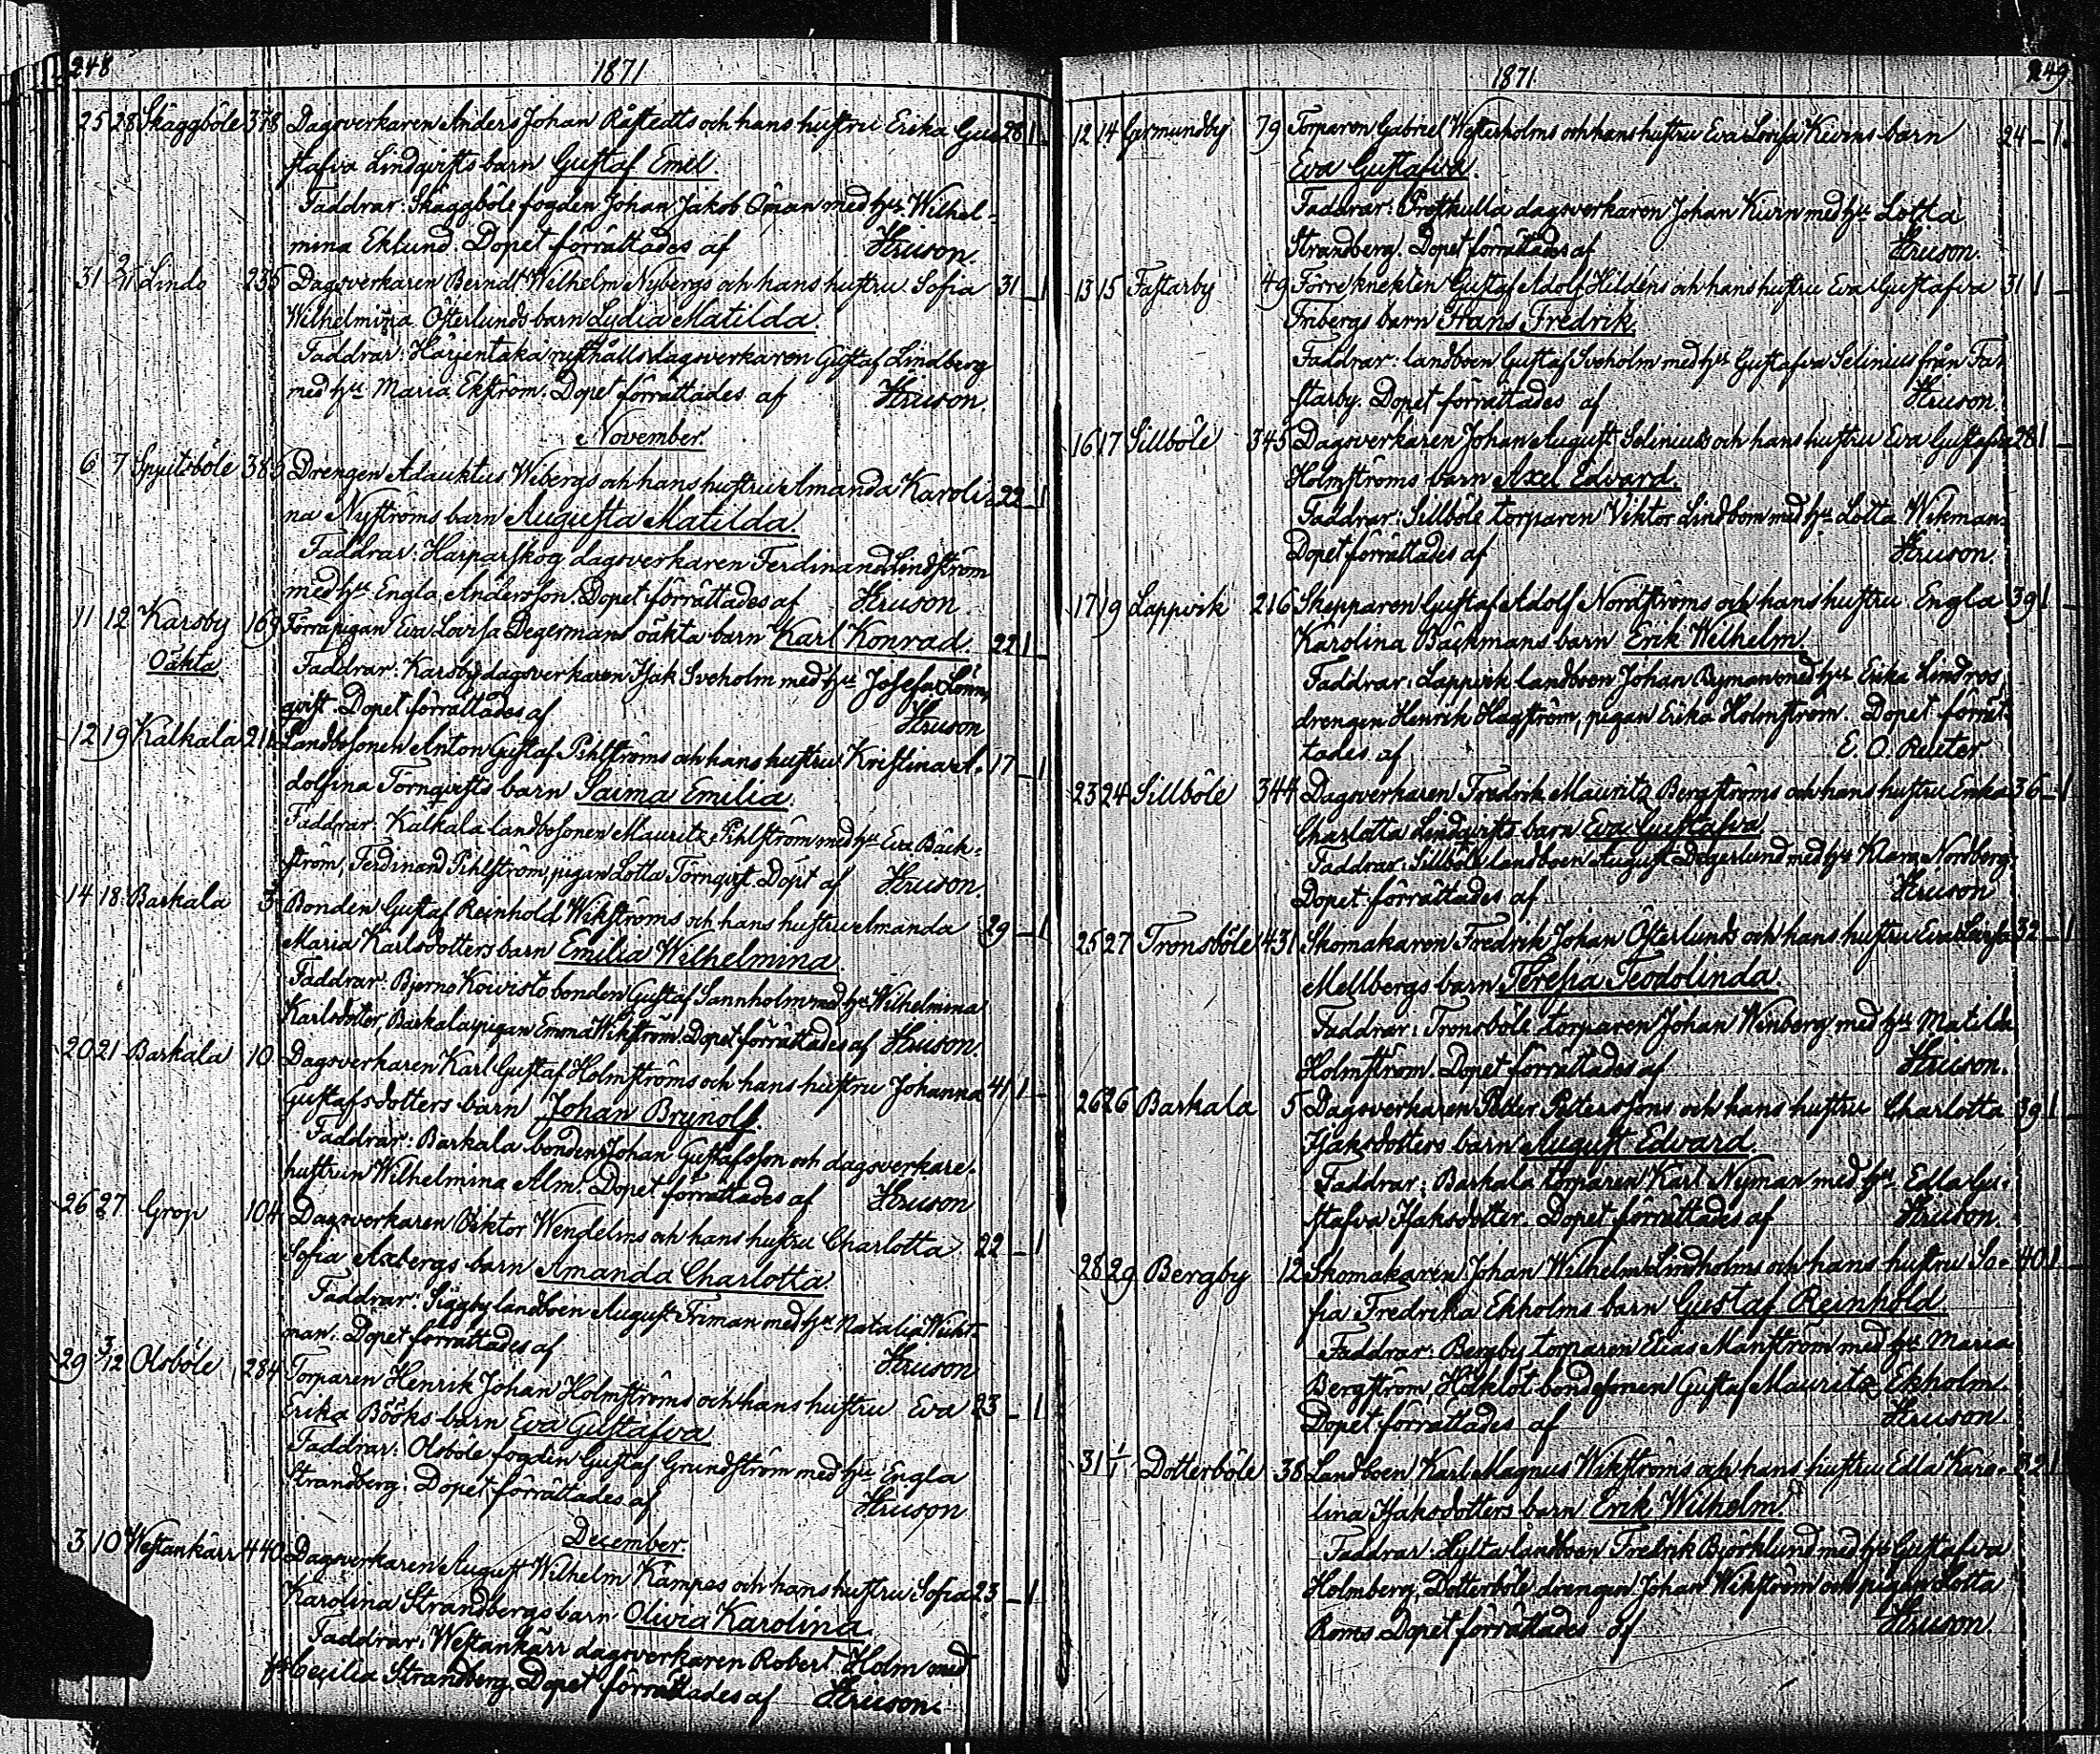 248
1871
25 28 Skäggböle 378 Dagsverkaren Anders Johan Råstedts och hans hustru Erika Gus 28 1 -
stafva Lindqvists barn Gustaf Emil.
Faddrar: Skäggböle fogden Johan Jakob Öman med hu Wilhel-
mina Eklund. Dopet förrättades af
31 2/11 Lindö 235 Dagsverkaren Berndt Wilhelm Nybergs och hans hustru Sofia 31 - 1
Wilhelmina Österlunds barn Lydia Matilda.
Faddrar: Harjentaka rusthålls dagsverkaren Gustaf Lindberg
med hu Maria Ekström. Dopet förrättades af
November.
6 7 Spjutsböle 386 Drengen Adauktus Wibergs och hans hustru Amanda Karoli- 22 - 1
na Nyströms barn Augusta Matilda.
Faddrar: Harparskog dagsverkaren Ferdinand Lindström
med hu Engla Andersson. Dopet förrättades af
11 12 Karsby 169 Förra pigan Eva Lovisa Degermans oäkta barn Karl Konrad. 22 1 -
Oäkta
Faddrar: Karsby dagsverkaren Isak Sveholm med hu Josefa Lönn-
qvist. Dopet förrättades af
12 19 Kalkala Landbosonen Anton Gustaf Pihlströms och hans hustru Kristina A- 17 - 1
dolfina Törnqvists barn Saima Emilia.
Faddrar: Kalkala landbosonen Mauritz Pihlström med hu Eva Bäck-
ström, Ferdinand Pihlström, pigan Lotta Törnqvist. Döpt af
14 18 Barkala 3 Bonden Gustaf Reinhold Wikströms och hans hustru Amanda 29 - 1
Maria Karlsdotters barn Emilia Wilhelmina.
Faddrar: Bjerno Koivisto bonden Gustaf Sannholm med hu Wilhelmina
Karlsdotter, Barkala pigan Emma Wikström. Dopet förrättades af
20 21 Barkala 10 Dagsverkaren Karl Gustaf Holmströms och hans hustru Johanna 41 1 -
Gustafsdotters barn Johan Brynolf.
Faddrar: Barkala bonden Johan Gustafsson och dagsverkare-
hustrun Wilhelmina Alm. Dopet förrättades af
26 27 Grop 104 Dagsverkaren Viktor Wendelins och hans hustru Charlotta 22 - 1
Sofia Axbergs barn Amanda Charlotta.
Faddrar: Siggby landboen August Friman med hu Natalia Wickt-
man. Dopet förrättades af
29 3/12 Olsböle 284 Torparen Henrik Johan Holmströms och hans hustru Eva 23 - 1
Erika Bööks barn Eva Gustafva.
Faddrar: Olsböle fogden Gustaf Grundström med hu Engla
Strandberg. Dopet förrättades af
December.
3 10 Westankärr 440 Dagsverkaren August Wilhelm Kämpes och hans hustru Sofia 23 - 1
Karolina Strandbergs barn Olivia Karolina.
Faddrar: Westankärr dagsverkaren Robert Holm med
hu Cecilia Strandberg. Dopet förrättades af
249
1871
12 14 Germundby 79 Torparen Gabriel Westerholms och hans hustru Eva Lovisa Kivins barn 24 - 1
Eva Gustafva.
Faddrar: Prostkulla dagsverkaren Johan Kivin med hu Lotta
Strandberg. Dopet förrättades af
13 15 Fastarby 49 Förre knekten Gustaf Adolf Hildéns och hans hustru Eva Gustafva 31 1 -
Fribergs barn Frans Fredrik.
Faddrar: landboen Gustaf Sveholm med hu Gustafva Selinius från Fa-
starby. Dopet förrättades af
16 17 Sillböle 345 Dagsverkaren Johan August Selinius och hans hustru Eva Gustafva 28 1 -
Holmströms barn Axel Edvard.
Faddrar: Sillböle torparen Viktor Lindbom med hu Lotta Wikman.
Dopet förrättades af
17 19 Lappvik 216 Skepparen Gustaf Adolf Nordströms och hans hustru Engla 39 1 -
Karolina Bäckmans barn Erik Wilhelm.
Faddrar: Lappvik landboen Johan Ryman med hu Erika Lindros,
drengen Henrik Hagström, pigan Erika Holmström. Dopet förrät-
tades af E. O. Reuter
23 24 Sillböle 344 Dagsverkaren Fredrik Mauritz Bergströms och hans hustru Erika 36 - 1
Charlotta Lindqvists barn Eva Gustafva
Faddrar: Sillböle landboen August Dagerlund med hu Klara Nordberg.
Dopet förrättades af
25 27 Tronsböle 431 Skomakaren Fredrik Johan Österlunds och hans hustru Eva Lovisa 32 - 1
Mellbergs barn Teresia Teodolinda.
Faddrar: Tronsböle torparen Johan Winberg med hu Matilda
Holmström. Dopet förrättades af
26 26 Barkala 5 Dagsverkaren Petter Petterssons och hans hustru Charlotta 39 1 -
Isaksdotters barn August Edvard.
Faddrar: Barkala torparen Karl Nyman med hu Edla Gu-
stafva Isaksdotter. Dopet förrättades af
28 29 Bergby 12 Skomakaren Johan Wilhelm Lindholms och hans hustru So- 40 1 -
fia Fredrika Ekholms barn Gustaf Reinhold.
Faddrar: Bergby torparen Elias Manström med hu Maria
Bergström, Håklöt bondesonen Gustaf Mauritz Ekholm.
Dopet förrättades af
31 1/1 Dotterböle 38 Landboen Karl Magnus Wikströms och hans hustru Edla Karo- 32 1 -
lina Isaksdotters barn Erik Wilhelm.
Faddrar: Hylta landboen Fredrik Björklund med hu Gustafva
Holmberg, Dotterböle drengen Johan Wikström och pigan Lotta
Roms. Dopet förrättades af